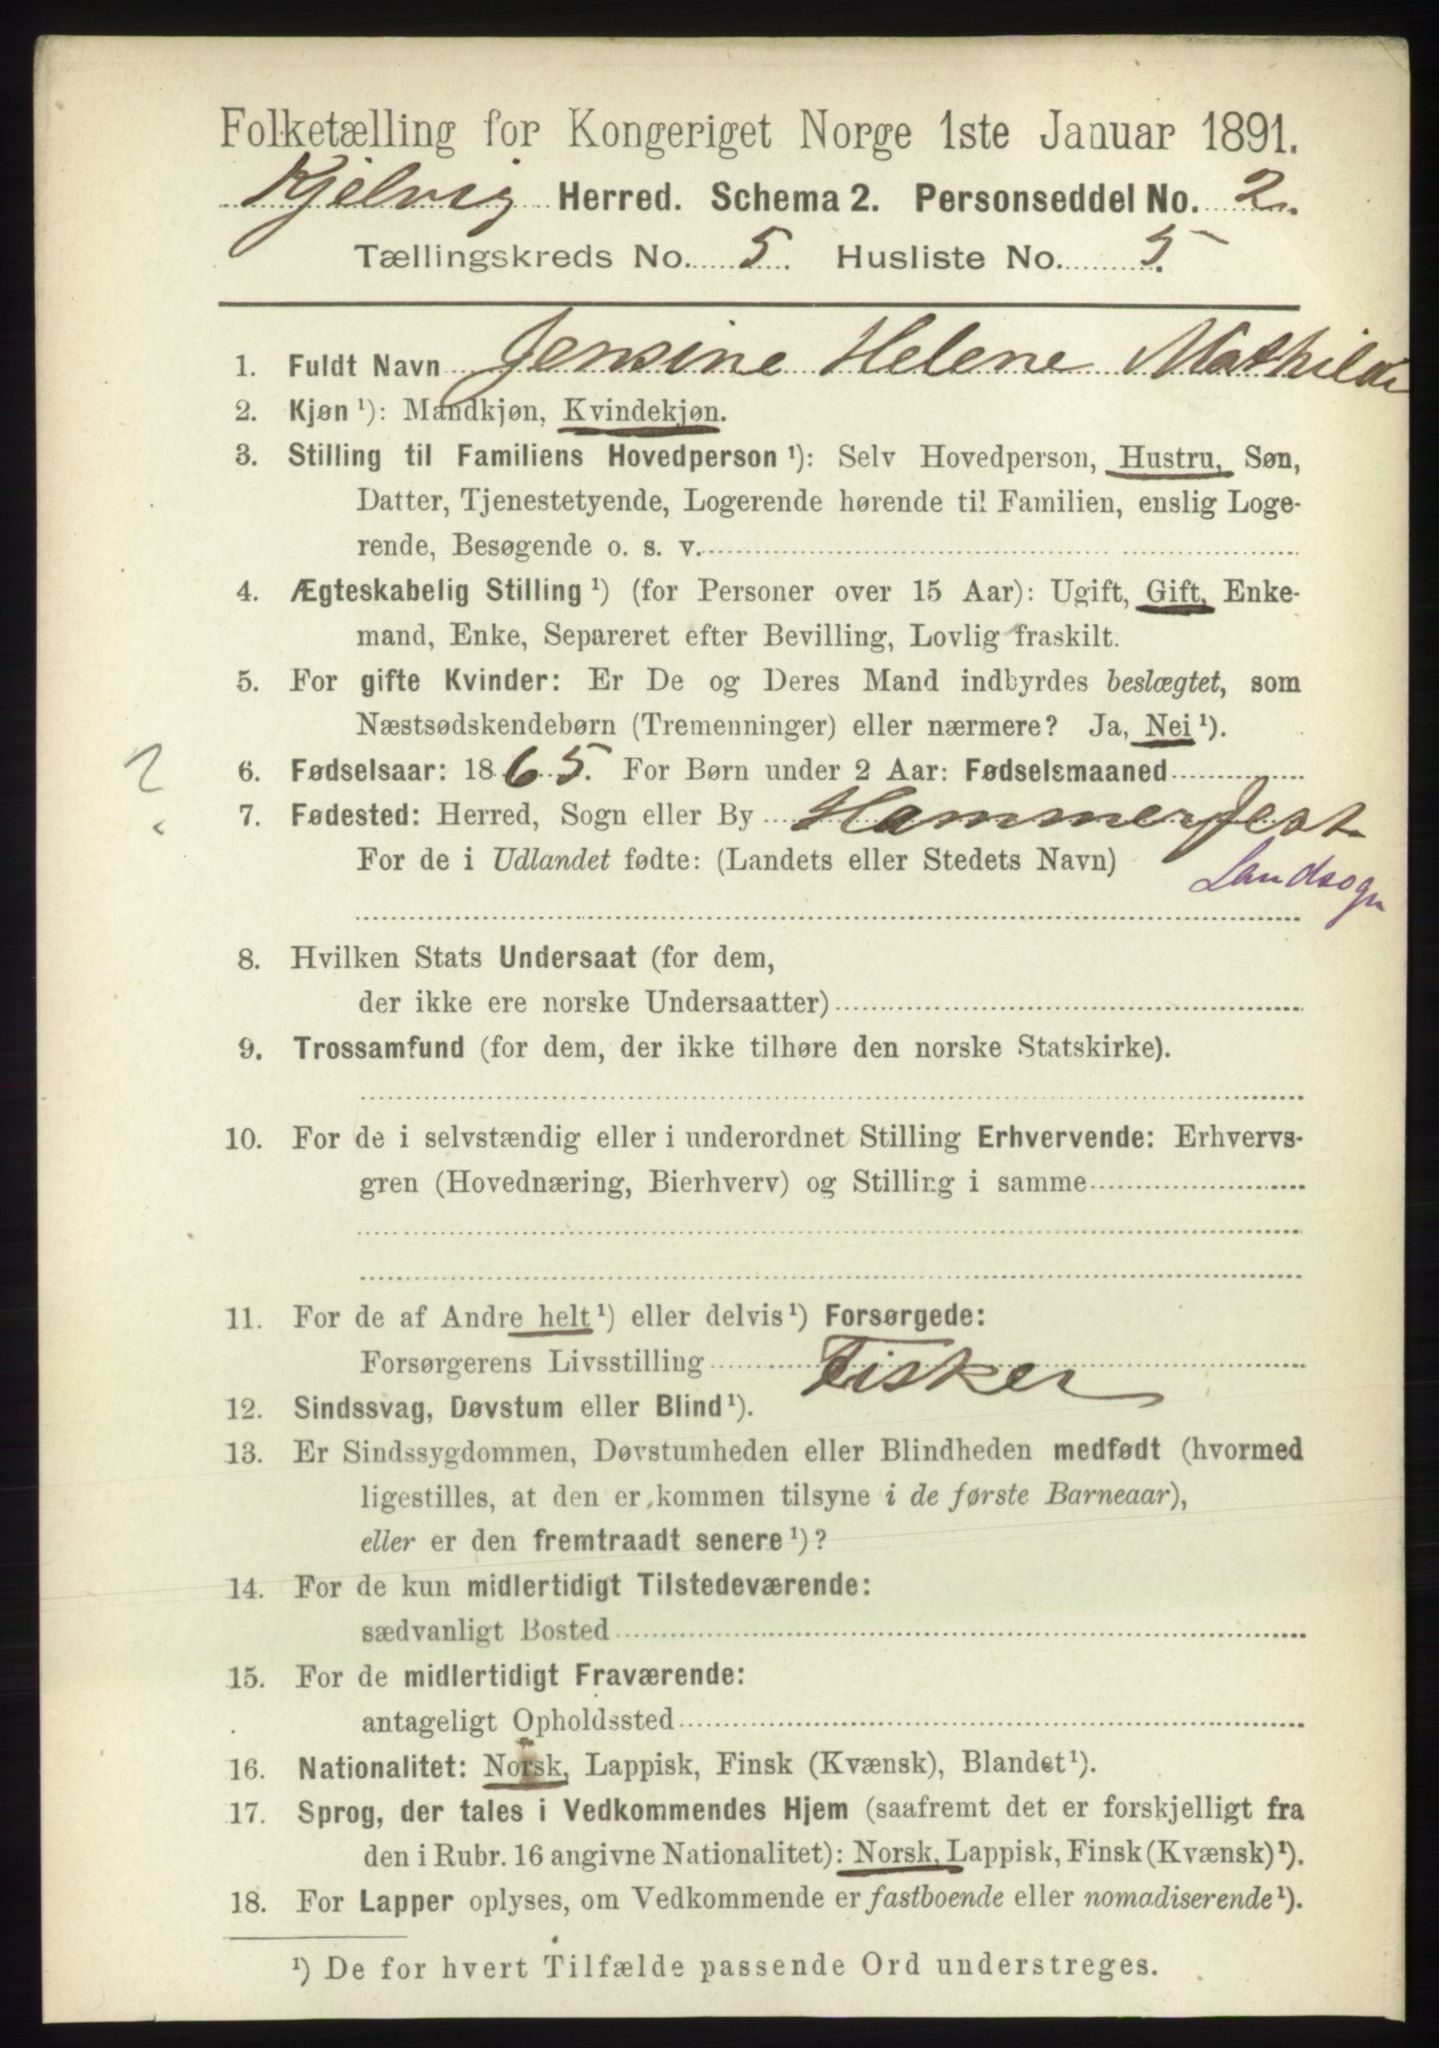 Folketælling for Kongeriget Norge 1ste Januar 1891.
Kjelvig Herred. Schema 2. Personseddel No. 2.
Tællingskreds No. 5. Husliste No. 5.
1. Fuldt Navn Jensine Helene Mathilde
2. Kjøn ¹): Mandkjøn, Kvindekjøn.
3. Stilling til Familiens Hovedperson ¹): Selv Hovedperson, Hustru, Søn,
Datter, Tjenestetyende, Logerende hørende til Familien, enslig Loge-
rende, Besøgende o. s. v.
4. Ægteskabelig Stilling ¹) (for Personer over 15 Aar): Ugift, Gift, Enke-
mand, Enke, Separeret efter Bevilling, Lovlig fraskilt.
5. For gifte Kvinder: Er De og Deres Mand indbyrdes beslægtet, som
Næstsødskendebørn (Tremenninger) eller nærmere? Ja, Nei ¹).
? 6. Fødselsaar: 1865. For Børn under 2 Aar: Fødselsmaaned
7. Fødested: Herred, Sogn eller By Hammerfest
For de i Udlandet fødte: (Landets eller Stedets Navn) Landsogn
8. Hvilken Stats Undersaat (for dem,
der ikke ere norske Undersaatter)
9. Trossamfund (for dem, der ikke tilhøre den norske Statskirke).
10. For de i selvstændig eller i underordnet Stilling Erhvervende: Erhvervs-
gren (Hovednæring, Bierhverv) og Stilling i samme
11. For de af Andre helt ¹) eller delvis ¹) Forsørgede:
Forsørgerens Livsstilling Fisker
12. Sindssvag, Døvstum eller Blind ¹).
13. Er Sindssygdommen, Døvstumheden eller Blindheden medfødt (hvormed
ligestilles, at den er kommen tilsyne i de første Barneaar),
eller er den fremtraadt senere ¹)?
14. For de kun midlertidigt Tilstedeværende:
sædvanligt Bosted
15. For de midlertidigt Fraværende:
antageligt Opholdssted
16. Nationalitet: Norsk, Lappisk, Finsk (Kvænsk), Blandet ¹).
17. Sprog, der tales i Vedkommendes Hjem (saafremt det er forskjelligt fra
den i Rubr. 16 angivne Nationalitet): Norsk, Lappisk, Finsk (Kvænsk) ¹).
18. For Lapper oplyses, om Vedkommende er fastboende eller nomadiserende ¹).
¹) De for hvert Tilfælde passende Ord understreges.